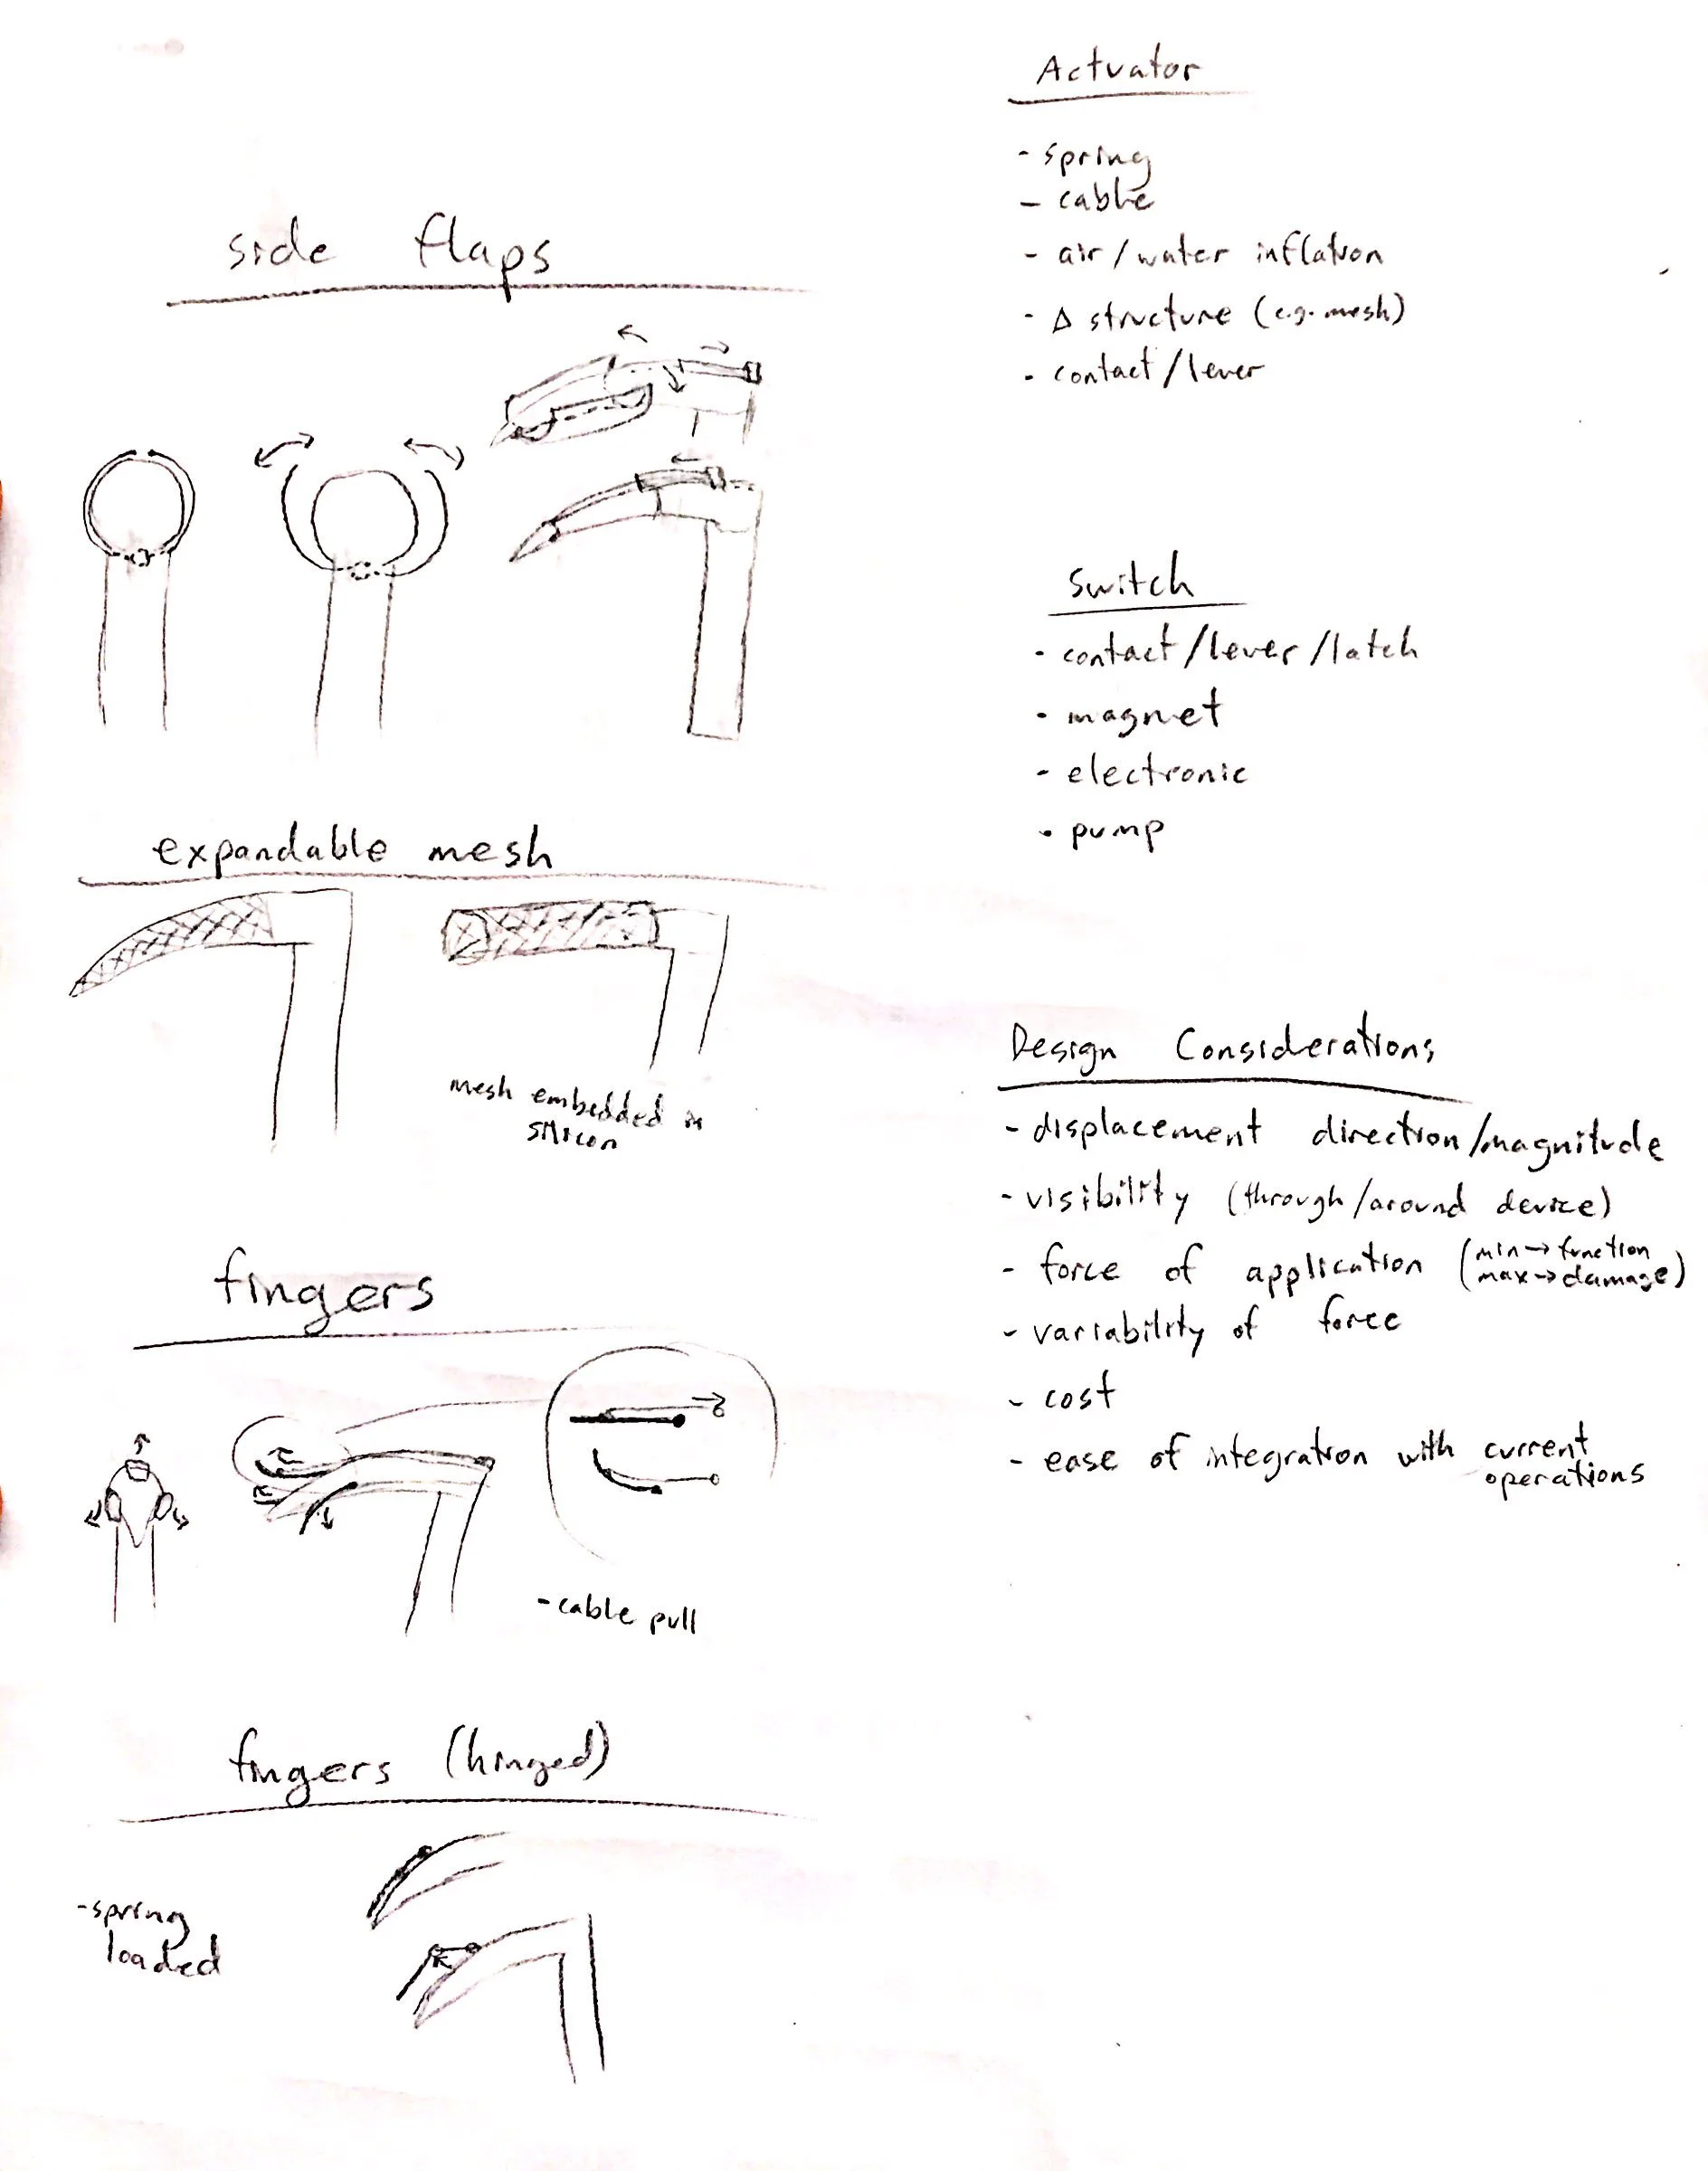 side flaps
expandable mesh
mesh embedded in
silicon
fingers
- cable pull
fingers (hinged)
- spring
loaded
Actuator
- spring
- cable
- air/water inflation
- Δ structure (e.g. mesh)
- contact/lever
Switch
- contact/lever/latch
- magnet
- electronic
- pump
Design Considerations
- displacement direction/magnitude
- visibility (through/around device)
- force of application (min→function
max→damage)
- variability of force
- cost
- ease of integration with current
operations